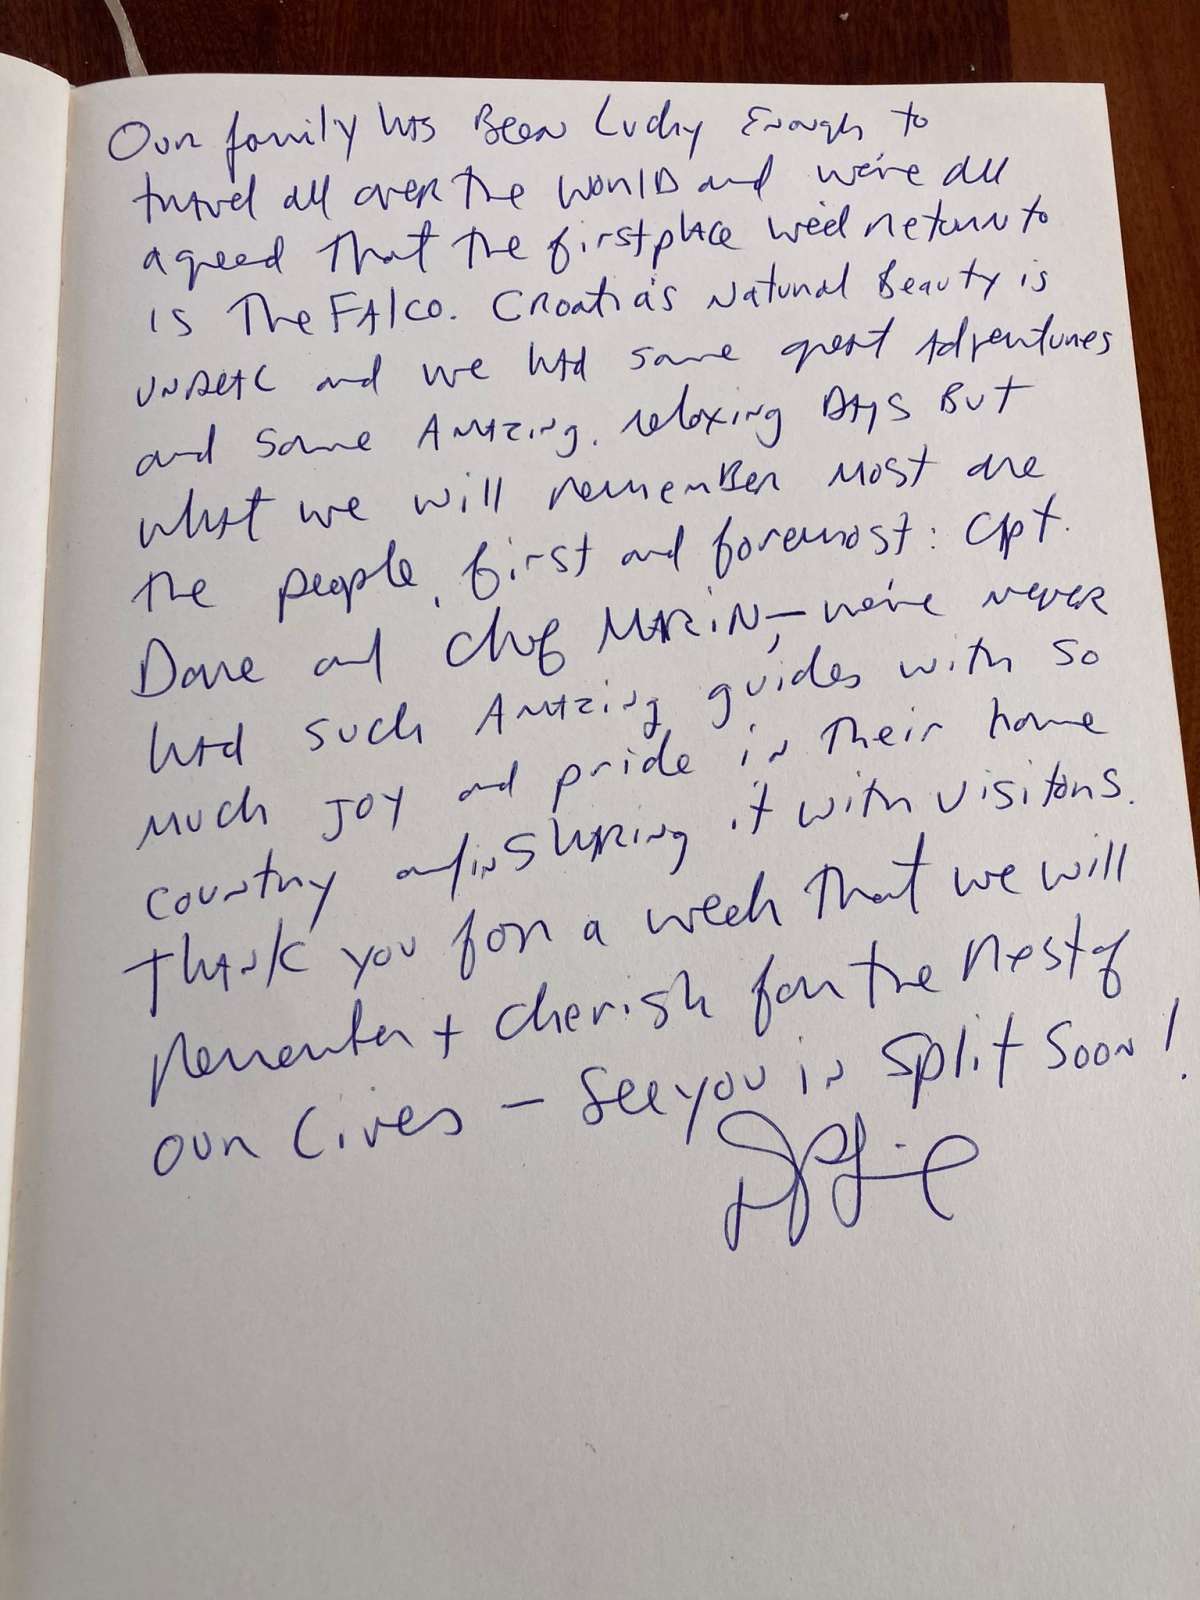 Our family has Been Lucky Enough to
travel all over the World and we've all
agreed that the first place we'd return to
is The Falco. Croatia's Natural Beauty is
and we had some great Adventures
and some Amazing, relaxing Days But
what we will remember most are
the people, first and foremost: Cpt.
Dane and Chef MARIN, – we've never
had such Amazing guides with so
much joy and pride in their home
country and in sharing it with visitors.
Thank you for a week that we will
Remember + cherish for the rest of
our Lives – See you in Split Soon!